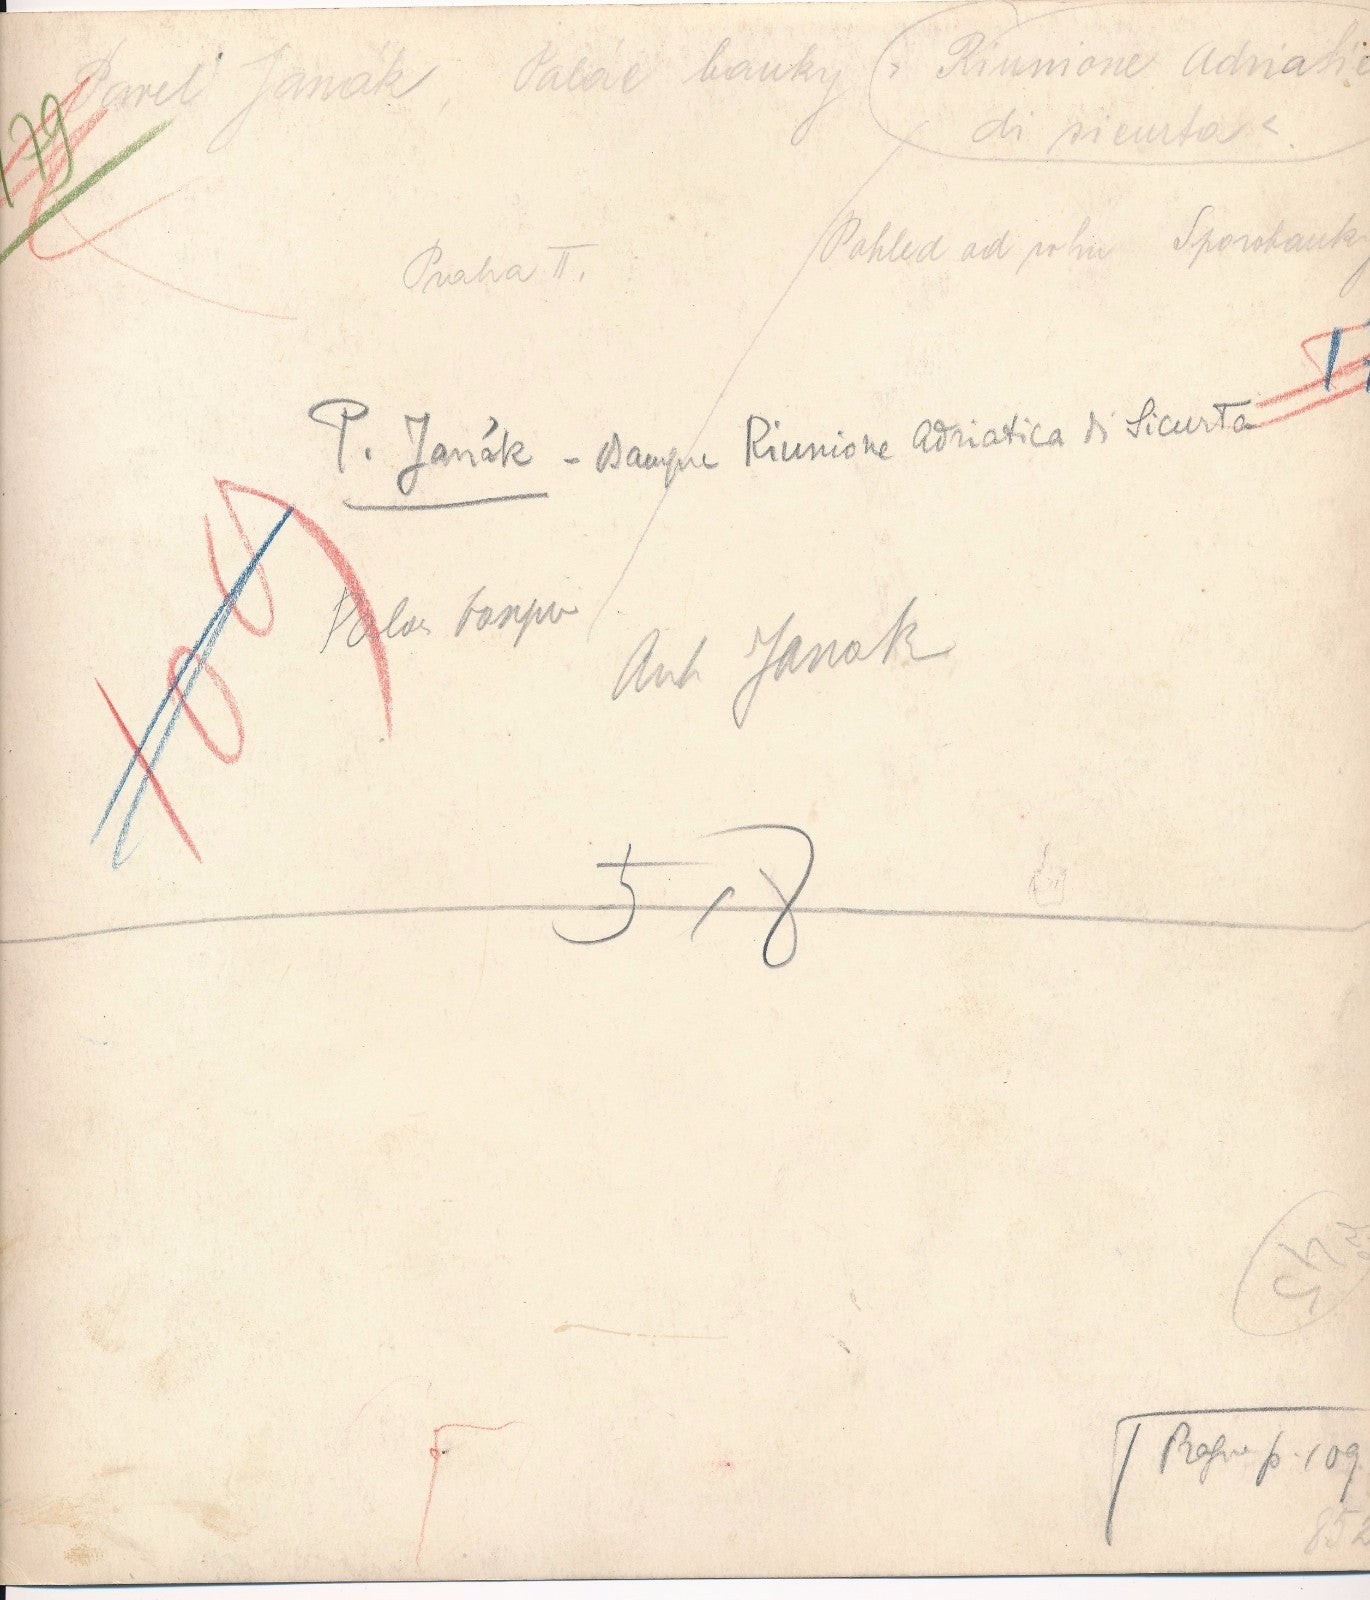 Pavel Janák, Palác banky „Riunione Adriatic
di sicurta“
179
Praha II.
Pohled od rohu Sporobanky
P. Janák - Banque Riunione Adriatica di Sicurta
Arch Janak
5 1 8
Prague p. 109
852